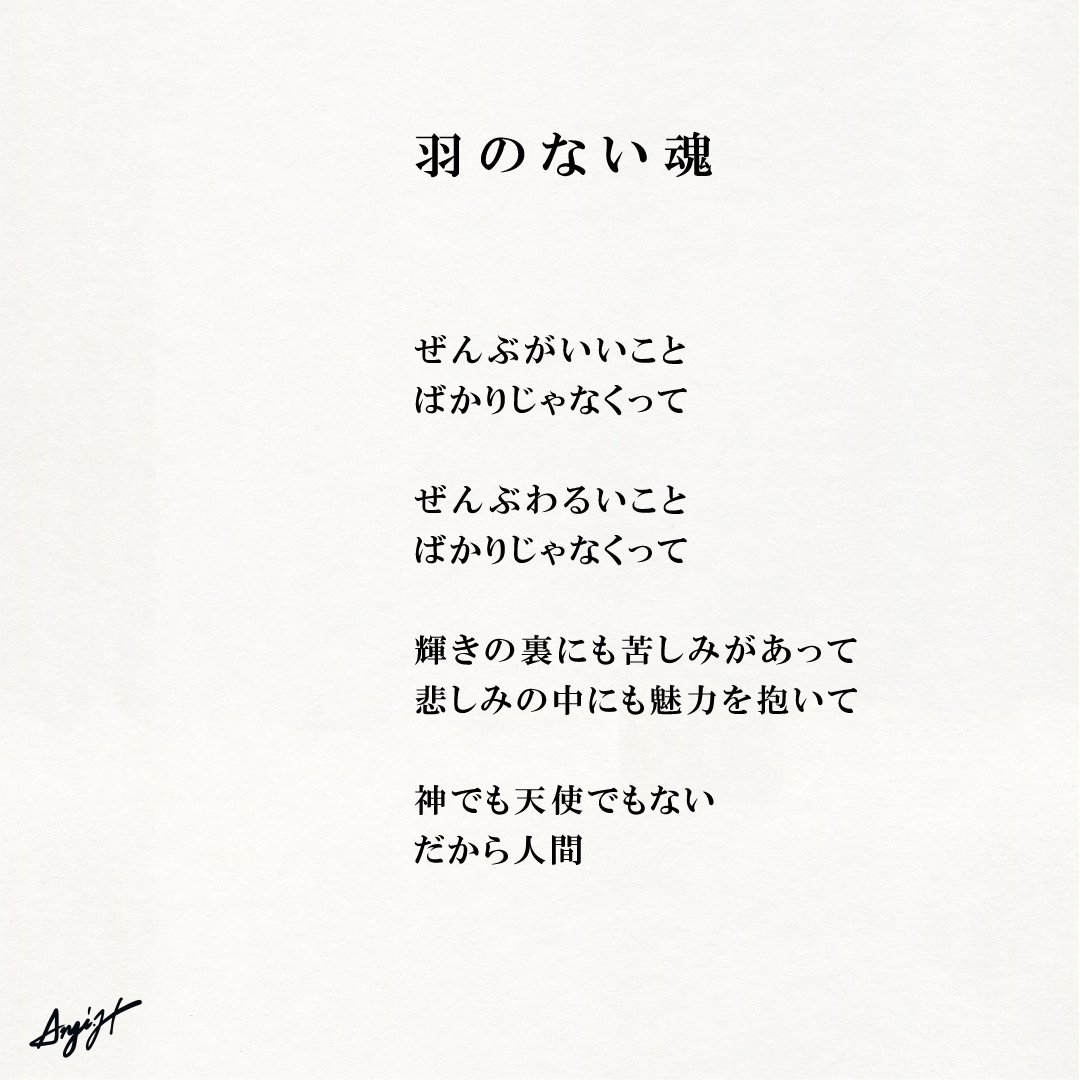 羽のない魂
ぜんぶがいいこと
ばかりじゃなくって
ぜんぶわるいこと
ばかりじゃなくって
輝きの裏にも苦しみがあって
悲しみの中にも魅力を抱いて
神でも天使でもない
だから人間